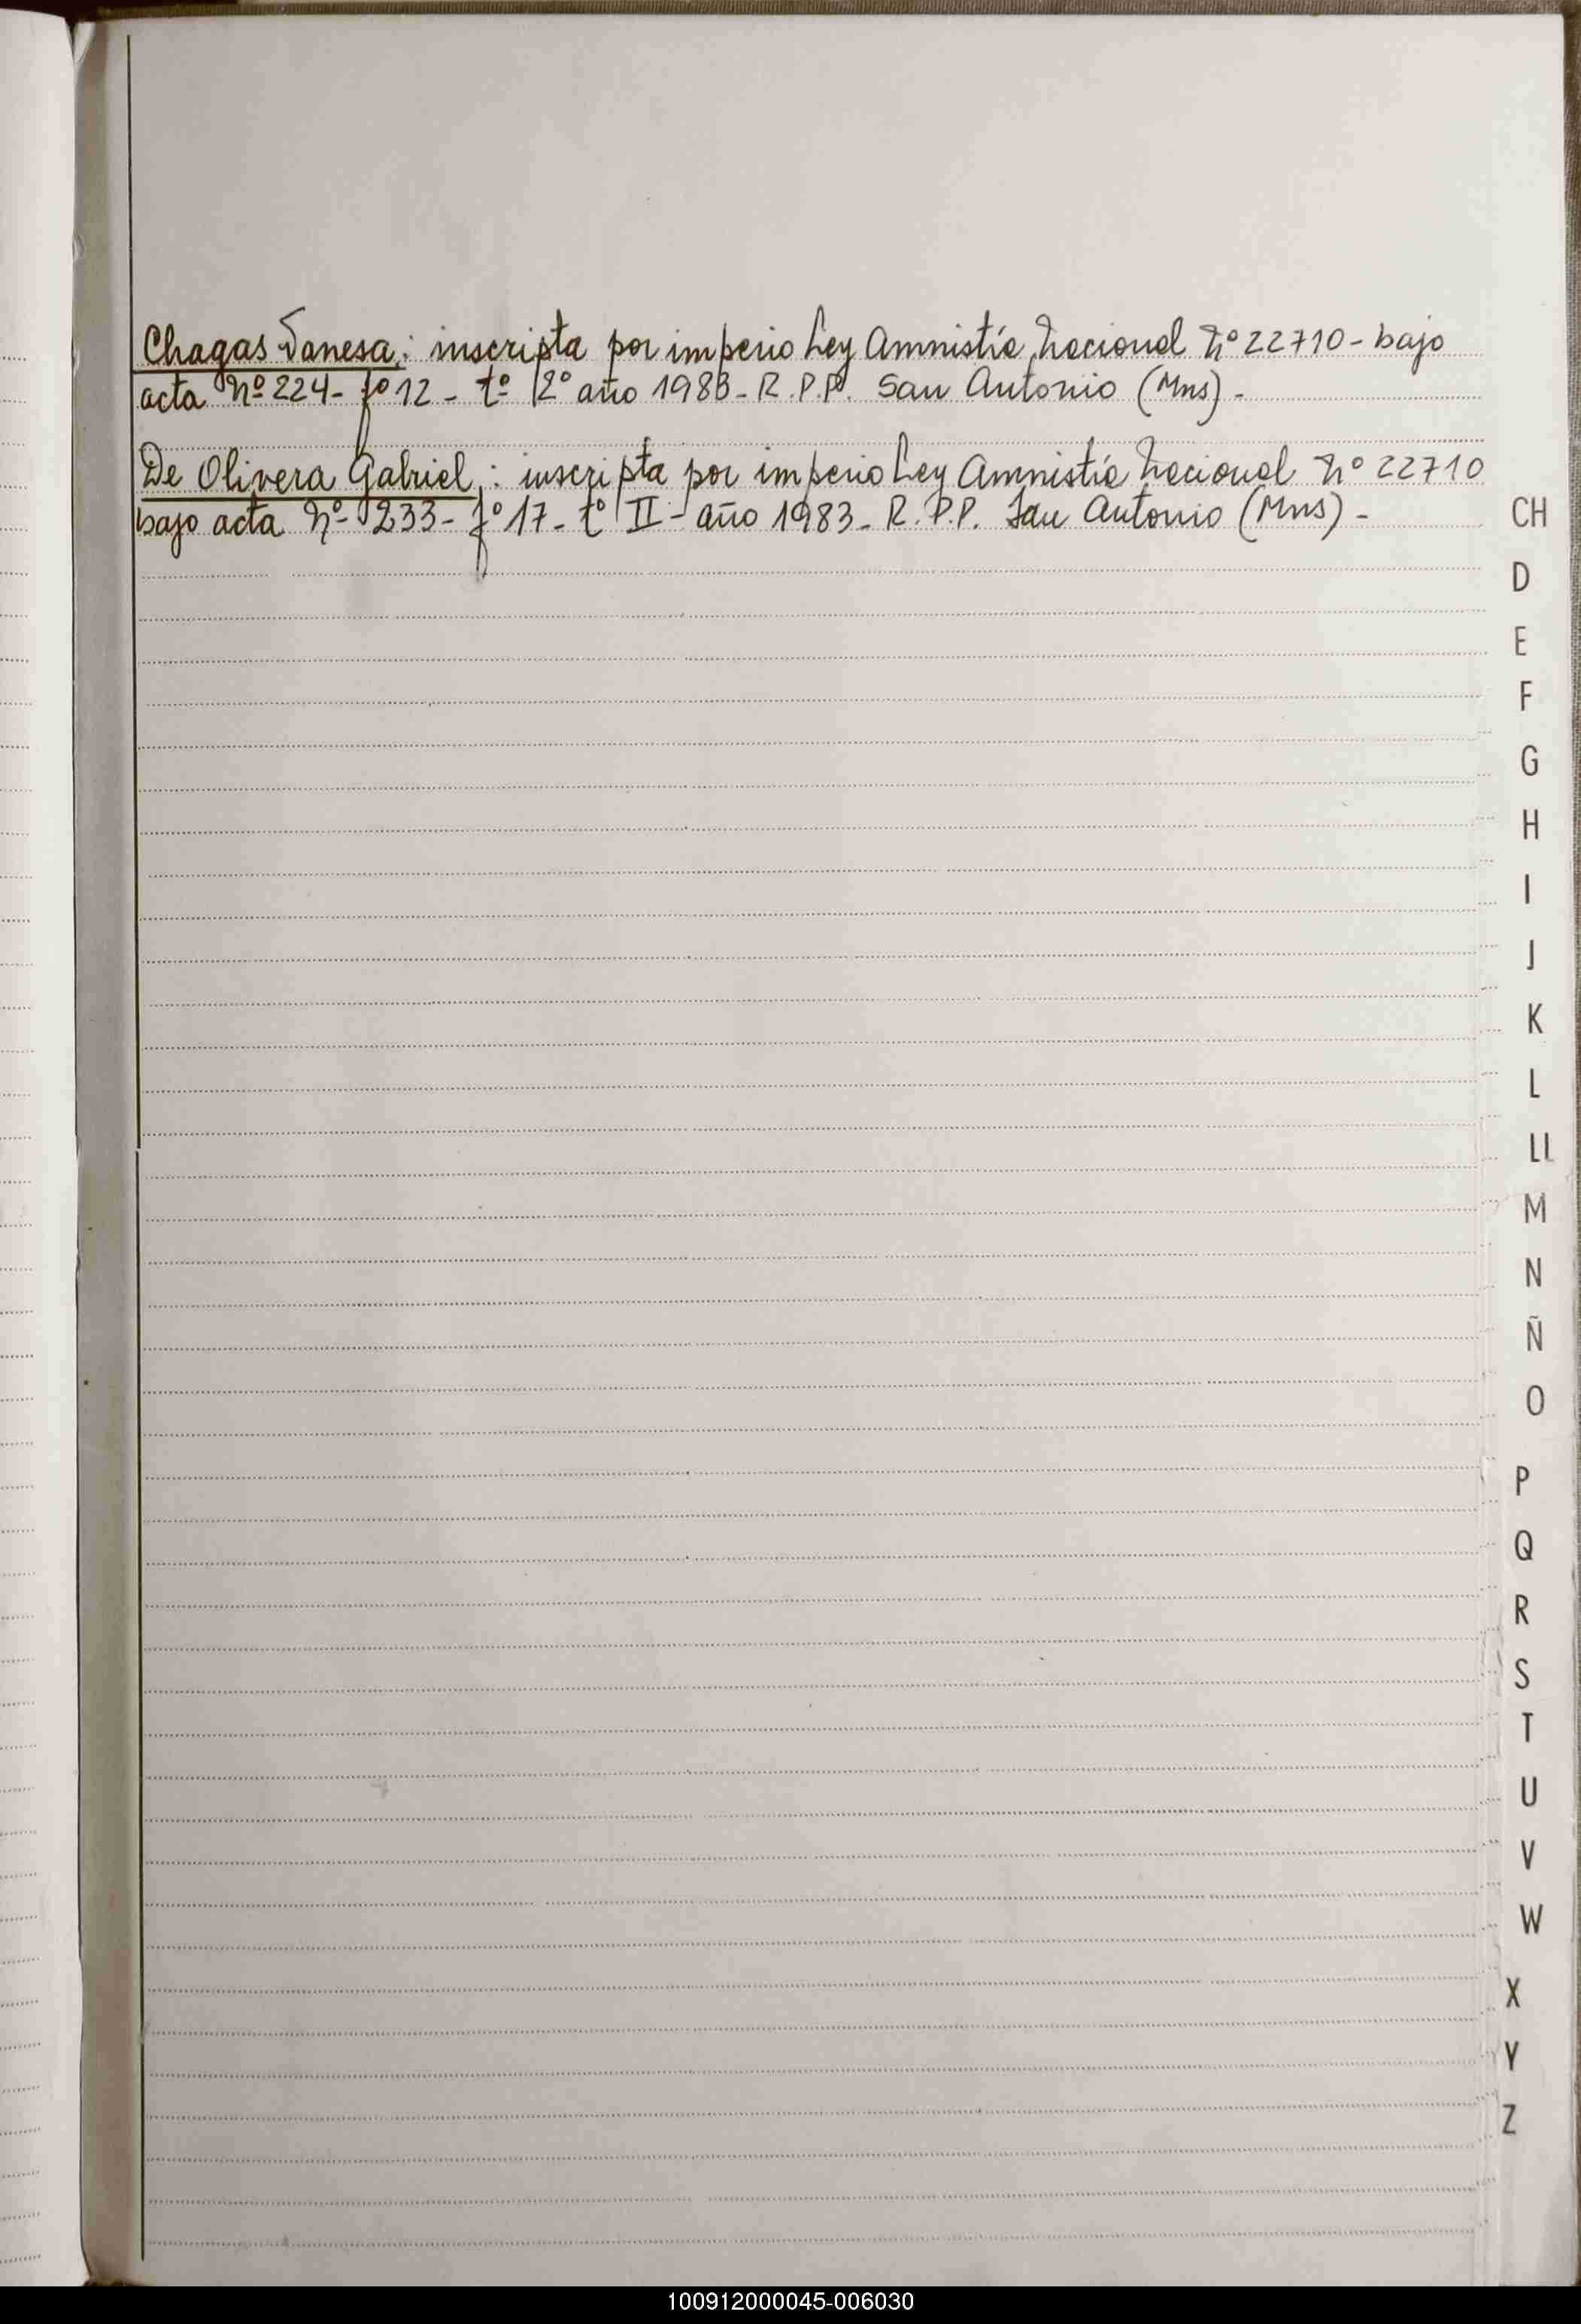 Chagas Vanesa: inscripta por imperio Ley Amnistía Nacional Nº 22710 - bajo
acta Nº 224 - fº 12 - tº 2º año 1983 - R.P.P. San Antonio (Mns) -
De Olivera Gabriel: inscripta por imperio Ley Amnistía Nacional Nº 22710
bajo acta Nº 233 - fº 17 - tº II - año 1983 - R.P.P. San Antonio (Mns) -
CH
D
E
F
G
H
I
J
K
L
LL
M
N
Ñ
O
P
Q
R
S
T
U
V
W
X
Y
Z
100912000045-006030